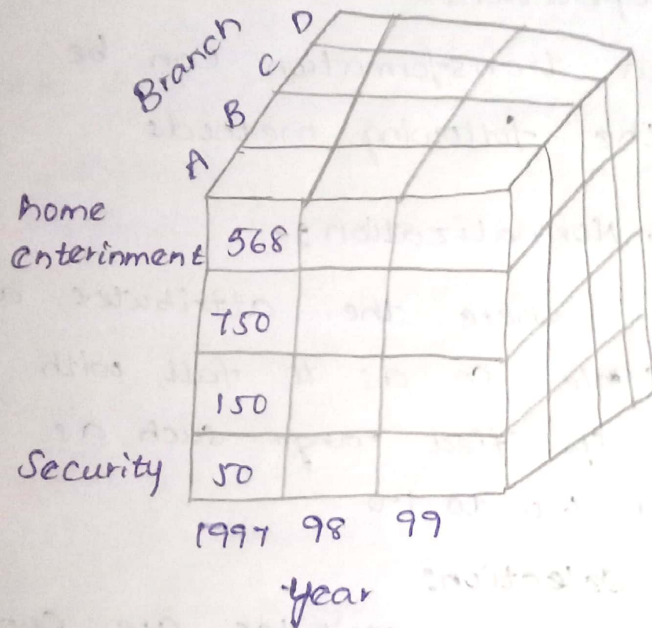 Branch
D
C
B
A
home
enterinment
568
750
150
Security
50
1997 98 99
year